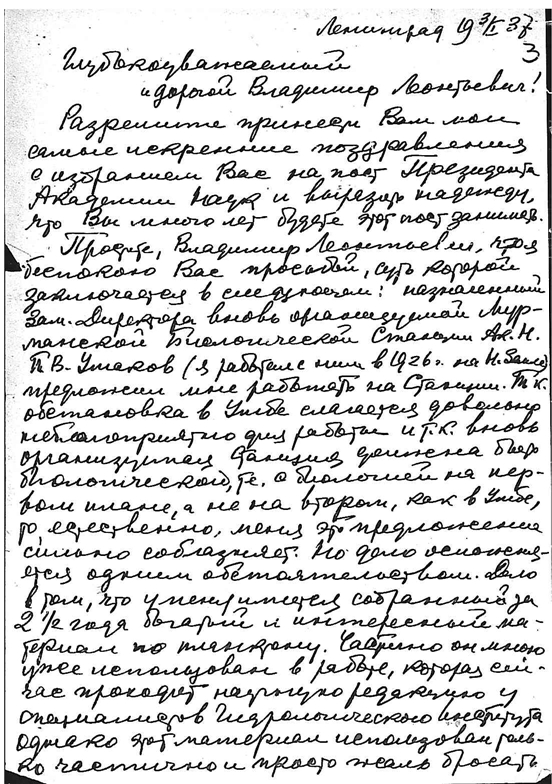 Ленинград 19 3/I 37
3
Глубокоуважаемый
и дорогой Владимир Леонтьевич!
Разрешите принести Вам мои
самые искренние поздравления
с избранием Вас на пост Президента
Академии Наук и выразить надежду,
что Вы много лет будете этот пост занимать.
Простите, Владимир Леонтьевич, что я
беспокою Вас просьбой, суть которой
заключается в следующем: назначенный
Зам. Директора вновь организуемой Мур-
манской Биологической Станции Ак. Н.
П.В. Ушаков (я работал с ним в 1926 г. на Н. Земле)
предложил мне работать на Станции. Т.к.
обстановка в Умбе слагается довольно
неблагоприятно для работы и т.к. вновь
организуемая Станция должна быть
биологической, т.е. с биологией на пер-
вом плане, а не на втором, как в Умбе,
то естественно, меня это предложение
сильно соблазняет. Но дело осложня-
ется одним обстоятельством. Дело
в том, что у меня имеется собранный за
2 1/2 года богатый и интересный ма-
териал по планктону. Частично он мною
уже использован в работе, которая сей-
час проходит научную редакцию у
специалистов Гидрологического института
однако этот материал использован толь-
ко частично и просто жаль бросать